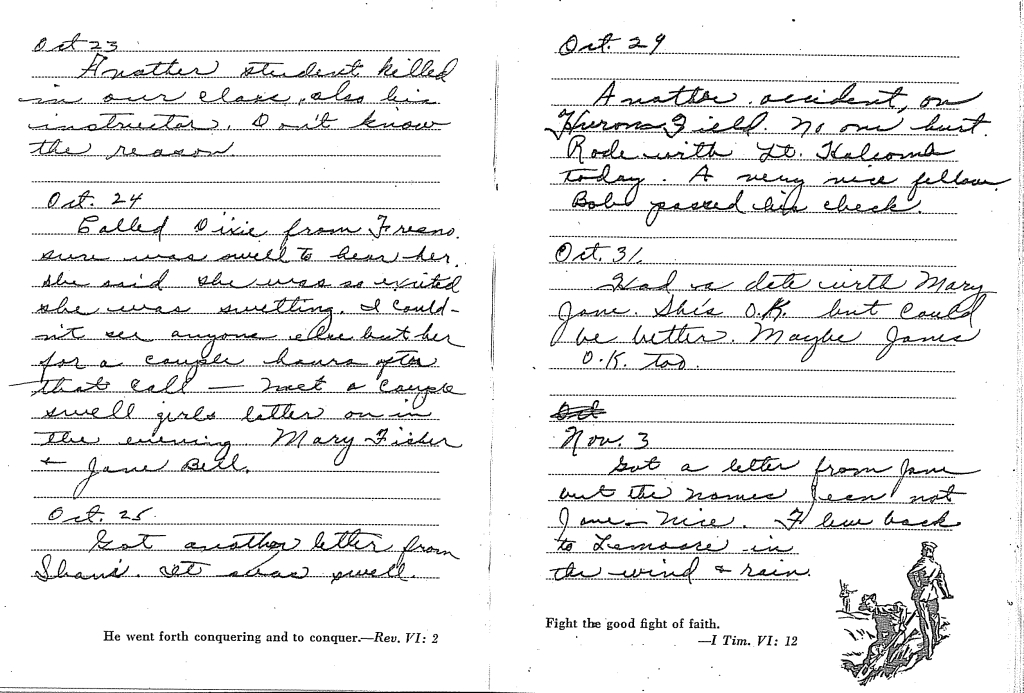 Oct 23
Another student killed
in our class, also his
instructor. Don't know
the reason.
Oct. 24
Called Dixie from Fresno.
sure was swell to hear her.
she said she was so exited
she was swetting. I could-
n't see anyone else but her
for a couple hours after
that call — met a couple
swell girls latter on in
the evening Mary Fisher
+ Jane Bell.
Oct. 25
Got another letter from
Shani. It was swell.
He went forth conquering and to conquer.—Rev. VI: 2
Oct. 29
Another accident, on
Hurons Field. No one hurt.
Rode with Lt. Holcomb
today. A very nice fellow.
Bob passed his check.
Oct. 31
Had a date with Mary
Jane. She's O.K. but could
be better. Maybe Janes
O.K. too.
Oct
Nov. 3
Got a letter from Jane
but the names Jean not
Jane – Nice. Flew back
to Lemoore in
the wind & rain.
Fight the good fight of faith.
—I Tim. VI: 12